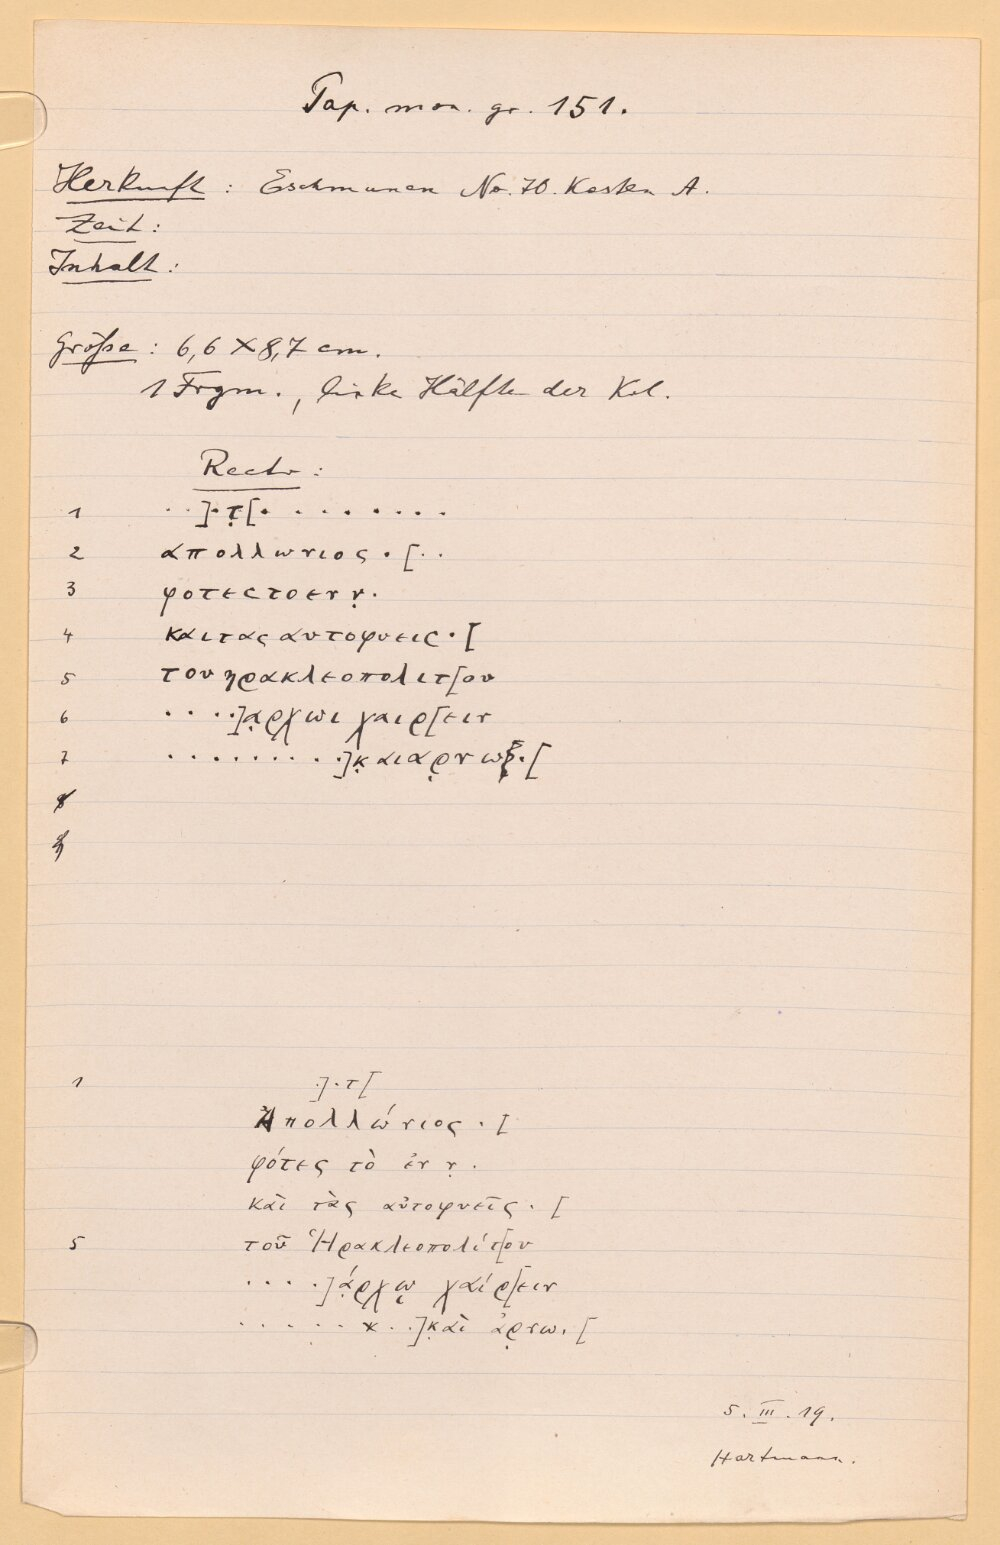 Pap. mon. gr. 151.
Herkunft: Eschmunen No. 70. Kasten A.
Zeit:
Inhalt:
Größe: 6,6 X 8,7 cm.
1 Frgm., linke Hälfte der Kol.
Recto:
1 . . ].τ̣[. . . . . . . .
2 απολλωνιος . [. .
3 φοτεςτοενν̣.
4 καιταςαυτοφυεις . [
5 τουηρακλεοπολιτ[ου
6 . . . . ]α̣ρχωι χαιρ[ειν
7 . . . . . . . . . ]κ̣αιαρ̣νω . [
8
9
1 .].τ[
Ἀπολλώνιος . [
φότες τὸ ἐν ν̣ .
καὶ τὰς αὐτοφυεῖς . [
5 τοῦ Ἡρακλεοπολίτ[ου
. . . . .]ά̣ρχῳ χαίρ̣[ειν
. . . . . x . .]κ̣αὶ ἀρ̣νω. [
5. III. 19.
Hartmann.